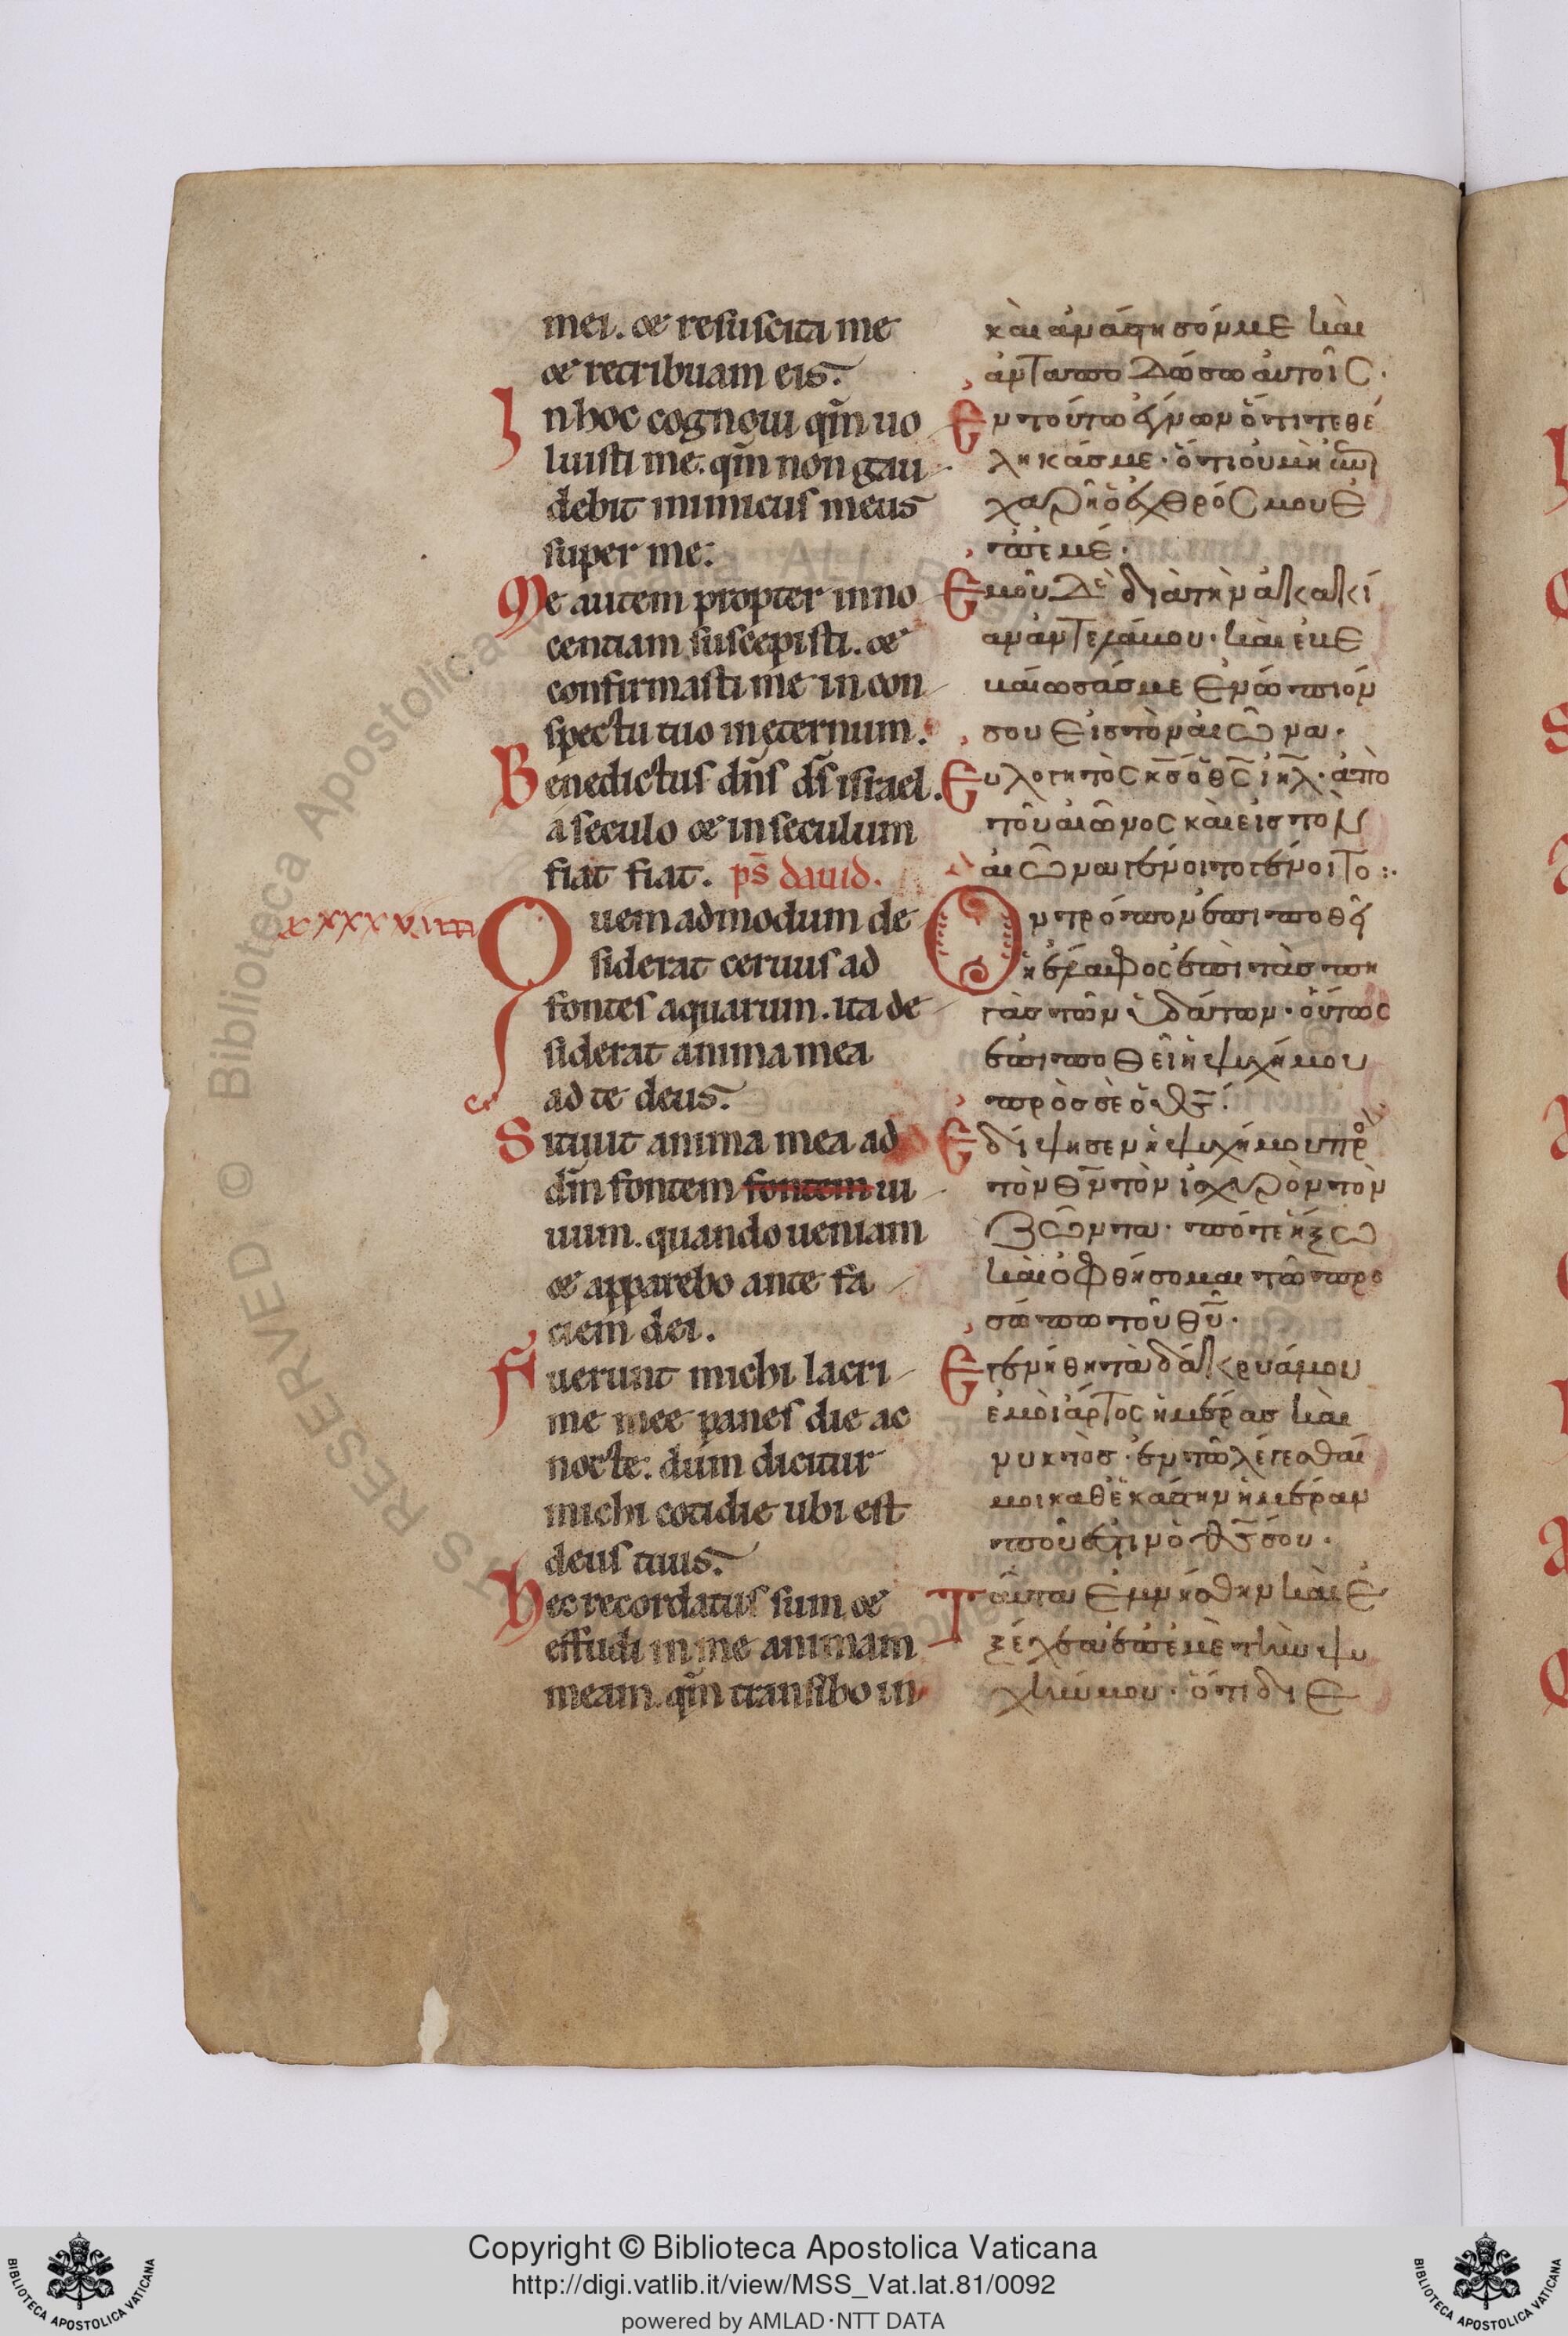 mei. & resuscita me
& retribuam eis.
In hoc cognoui qm̄ uo
luisti me. qm̄ non gau
debit inimicus meus
super me:
Me autem propter inno
centiam suscepisti. &
confirmasti me in con
spectu tuo in ęternum.
Benedictus dn̄s ds̄ israel.
a seculo & in seculum
fiat fiat. ps̄ dauid.
Quemadmodum de
siderat ceruus ad
fontes aquarum. ita de
siderat anima mea
ad te deus.
Sitiuit anima mea ad
dm̄ fontem fontem ui
uum. quando ueniam
& apparebo ante fa
ciem dei.
Fuerunt michi lacri
me mee panes die ac
nocte: dum dicitur
michi cotidie ubi est
deus tuus.
Hec recordatus sum &
effudi in me animam
meam. qm̄ transibo in
κὰι ἀνάστησόν με κὰι
ἀνταποδώσω ἀυτοῖς.
Εν τούτω ἔγνων ὅτι τεθέ
ληκάσ με. ὅτι ὀυ μὴ
χαρῆ ὁ ἐχθρός μου ἐ
π' ἐμέ.
Εμοῦ δὲ διὰ τὴν ἀκακί
αν ἀντελάβου. κὰι
σάσ με ἐνώπιόν
σου εἰσ τὸν αἰῶνα.
Ευλογητὸς κ̄σ ὁ θ̄ς ἰη̄λ. ἀπὸ
τοῦ αἰῶνος κὰι εἰσ τὸν
αἰῶνα γένοιτο γένοιτο:.
Ον τρόπον ἐπιποθεῖ
ἡ ἔλαφος ἐπὶ τὰσ πη
γὰσ τῶν ὑδάτων. ὅυτως
ἐπιποθεῖ ἡ ψυχή μου
πρὸσ σὲ ὁ θ̄ς.
Εδίψησεν ἡ ψυχή μου πρ
τὸν θ̄ν τὸν ἰσχυρὸν τὸν
ζῶντα. πότε ἥξω
κὰι ὀφθήσομαι τῶ προ
σώπω τοῦ θ̄υ.
Εγενήθη τὰ δάκρυά μου
ἐμὸι ἄρτος ἡμέρασ κὰι
νυκτὸσ. ἐν τῶ λέγεσθαί
μοι καθ' ἑκάστην ἡμέραν
ποῦ ἐστιν ὁ θ̄ς σου.
Ταῦτα ἐμνήσθην κὰι ἐ
ξέχεα ἐπ' ἐμὲ τὴν ψυ
χήν μου. ὅτι διε
© Biblioteca Apostolica Vaticana
Copyright © Biblioteca Apostolica Vaticana
http://digi.vatlib.it/view/MSS_Vat.lat.81/0092
powered by AMLAD·NTT DATA
BIBLIOTECA APOSTOLICA VATICANA
BIBLIOTECA APOSTOLICA VATICANA